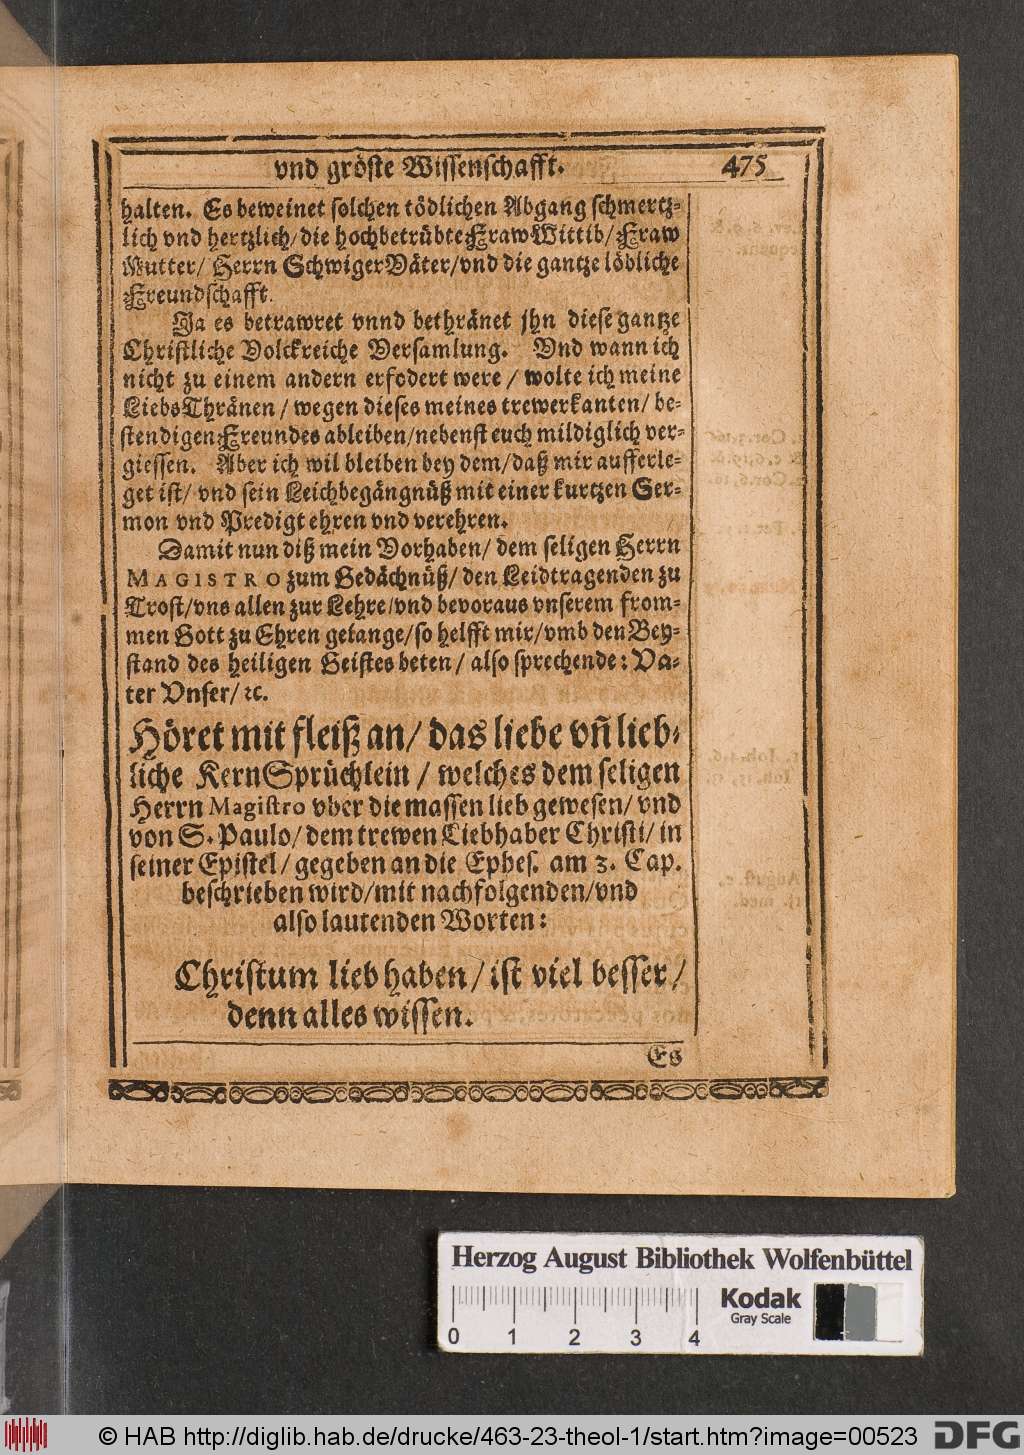 vnd gröste Wissenschafft. 475
halten. Es beweinet solchen tödlichen Abgang schmertz-
lich vnd hertzlich/die hochbetrübte Fraw Wittib/Fraw
Mutter/ Herrn SchwigerVäter/vnd die gantze löbliche
Freundschafft.
Ja es betrawret vnnd bethränet jhn diese gantze
Christliche Volckreiche Versamlung. Vnd wann ich
nicht zu einem andern erfodert were / wolte ich meine
LiebsThränen / wegen dieses meines trewerkanten/ be-
stendigen Freundes ableiben/nebenst euch mildiglich ver-
giessen. Aber ich wil bleiben bey dem/daß mir aufferle-
get ist/ vnd sein Leichbegängnüß mit einer kurtzen Ser-
mon vnd Predigt ehren vnd verehren.
Damit nun diß mein Vorhaben/ dem seligen Herrn
MAGISTRO zum Gedächnüß/ den Leidtragenden zu
Trost/vns allen zur Lehre/vnd bevoraus vnserem from-
men Gott zu Ehren gelange/so helfft mir/vmb den Bey-
stand des heiligen Geistes beten/ also sprechende: Va-
ter Vnser/ ꝛc.
Höret mit fleiß an/ das liebe vn̄ lieb-
liche KernSprüchlein / welches dem seligen
Herrn Magistro vber die massen lieb gewesen/ vnd
von S. Paulo/ dem trewen Liebhaber Christi/ in
seiner Epistel/ gegeben an die Ephes. am 3. Cap.
beschrieben wird/mit nachfolgenden/vnd
also lautenden Worten:
Christum lieb haben/ ist viel besser/
denn alles wissen.
Es
Herzog August Bibliothek Wolfenbüttel
0 1 2 3 4
Kodak
Gray Scale
© HAB http://diglib.hab.de/drucke/463-23-theol-1/start.htm?image=00523
DFG